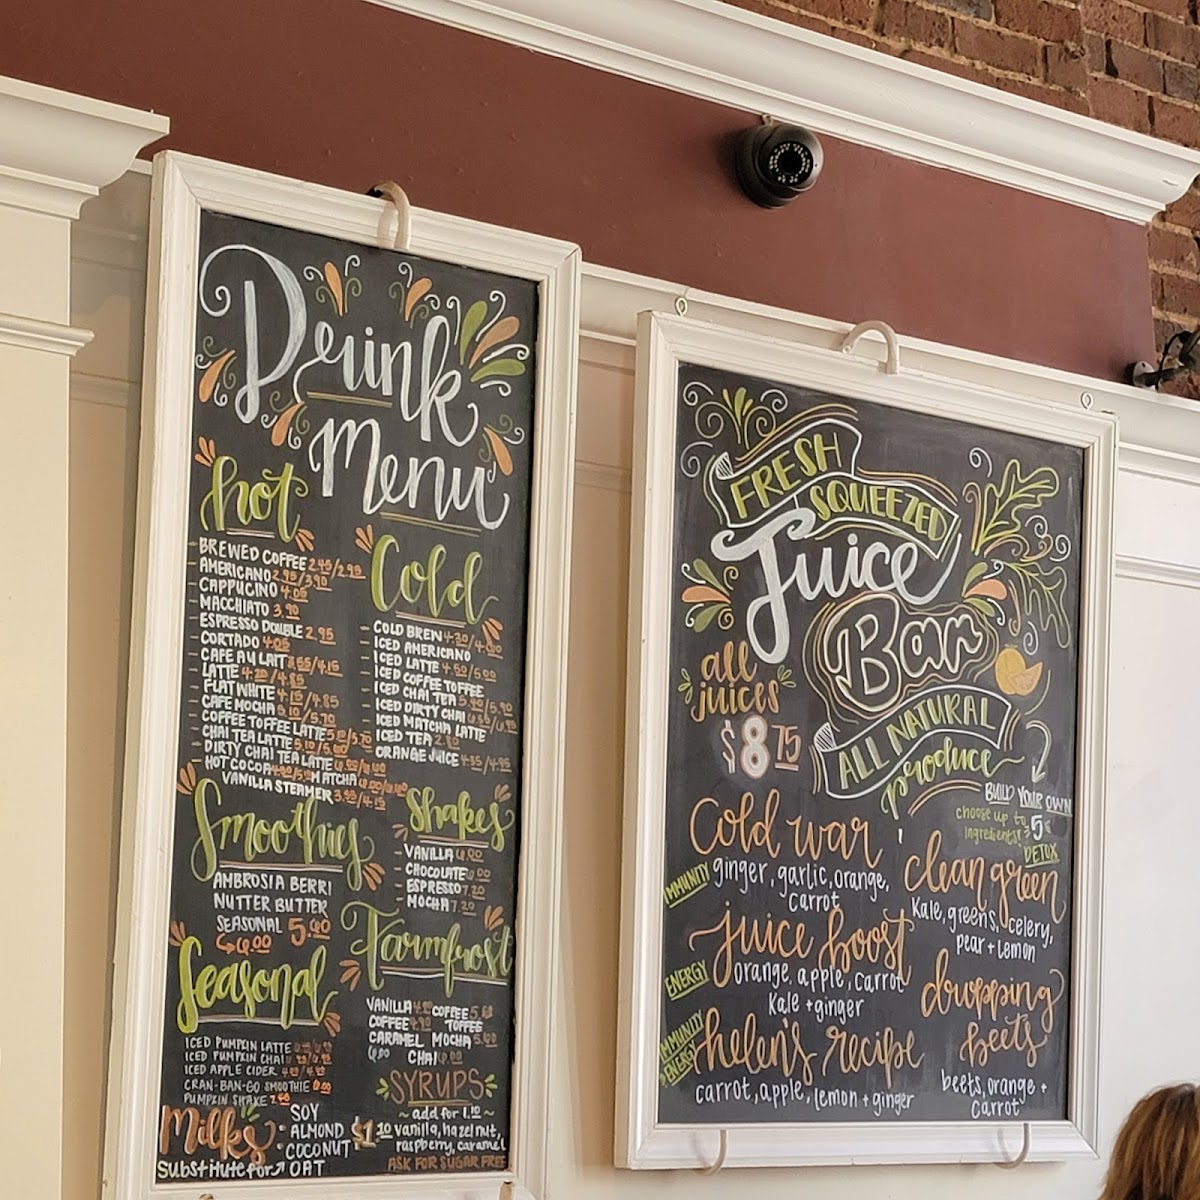 Drink
Menu
hot
- BREWED COFFEE 2.45/2.95
- AMERICANO 2.95/3.90
- CAPPUCINO 4.05
- MACCHIATO 3.90
- ESPRESSO DOUBLE 2.95
- CORTADO 4.05
- CAFE AU LAIT /4.15
- LATTE 4.20/4.85
- FLAT WHITE 4.15/4.85
- CAFE MOCHA 5.10/5.70
- COFFEE TOFFEE LATTE 5.10/5.70
- CHAI TEA LATTE 5.10/
- DIRTY CHAI TEA LATTE
- HOT COCOA MATCHA
VANILLA STEAMER 3.95/4.15
Cold
- COLD BREW 4.30/
- ICED AMERICANO
- ICED LATTE 4.50/5.00
- ICED COFFEE TOFFEE
- ICED CHAI TEA 5.40/5.90
- ICED DIRTY CHAI
- ICED MATCHA LATTE
- ICED TEA 2.80
- ORANGE JUICE 4.35/4.95
Smoothies
AMBROSIA BERRI
NUTTER BUTTER
SEASONAL 5.60
6.00
Shakes
- VANILLA 6.00
- CHOCOLATE 6.00
- ESPRESSO 7.20
- MOCHA 7.20
Seasonal
ICED PUMPKIN LATTE
ICED PUMPKIN CHAI
ICED APPLE CIDER
CRAN-BAN-GO SMOOTHIE 6.00
PUMPKIN SHAKE
Farmfrost
VANILLA COFFEE
COFFEE TOFFEE
CARAMEL MOCHA
6.00 CHAI 6.00
Milks
Substitute for
• SOY
• ALMOND $1.10
• COCONUT
OAT
SYRUPS
~ add for 1.10 ~
vanilla, hazelnut,
raspberry, caramel
ASK FOR SUGAR FREE
FRESH
SQUEEZED
Juice
Bar
ALL NATURAL
produce
all
juices
$8.75
BUILD YOUR OWN
choose up to
ingredients! 5
Cold war
IMMUNITY
ginger, garlic, orange,
carrot
DETOX
clean green
Kale, greens, celery,
pear + lemon
juice boost
ENERGY
orange, apple, carrot
Kale + ginger
dropping
beets
beets, orange +
carrot
helen's recipe
IMMUNITY
& ENERGY
carrot, apple, lemon + ginger